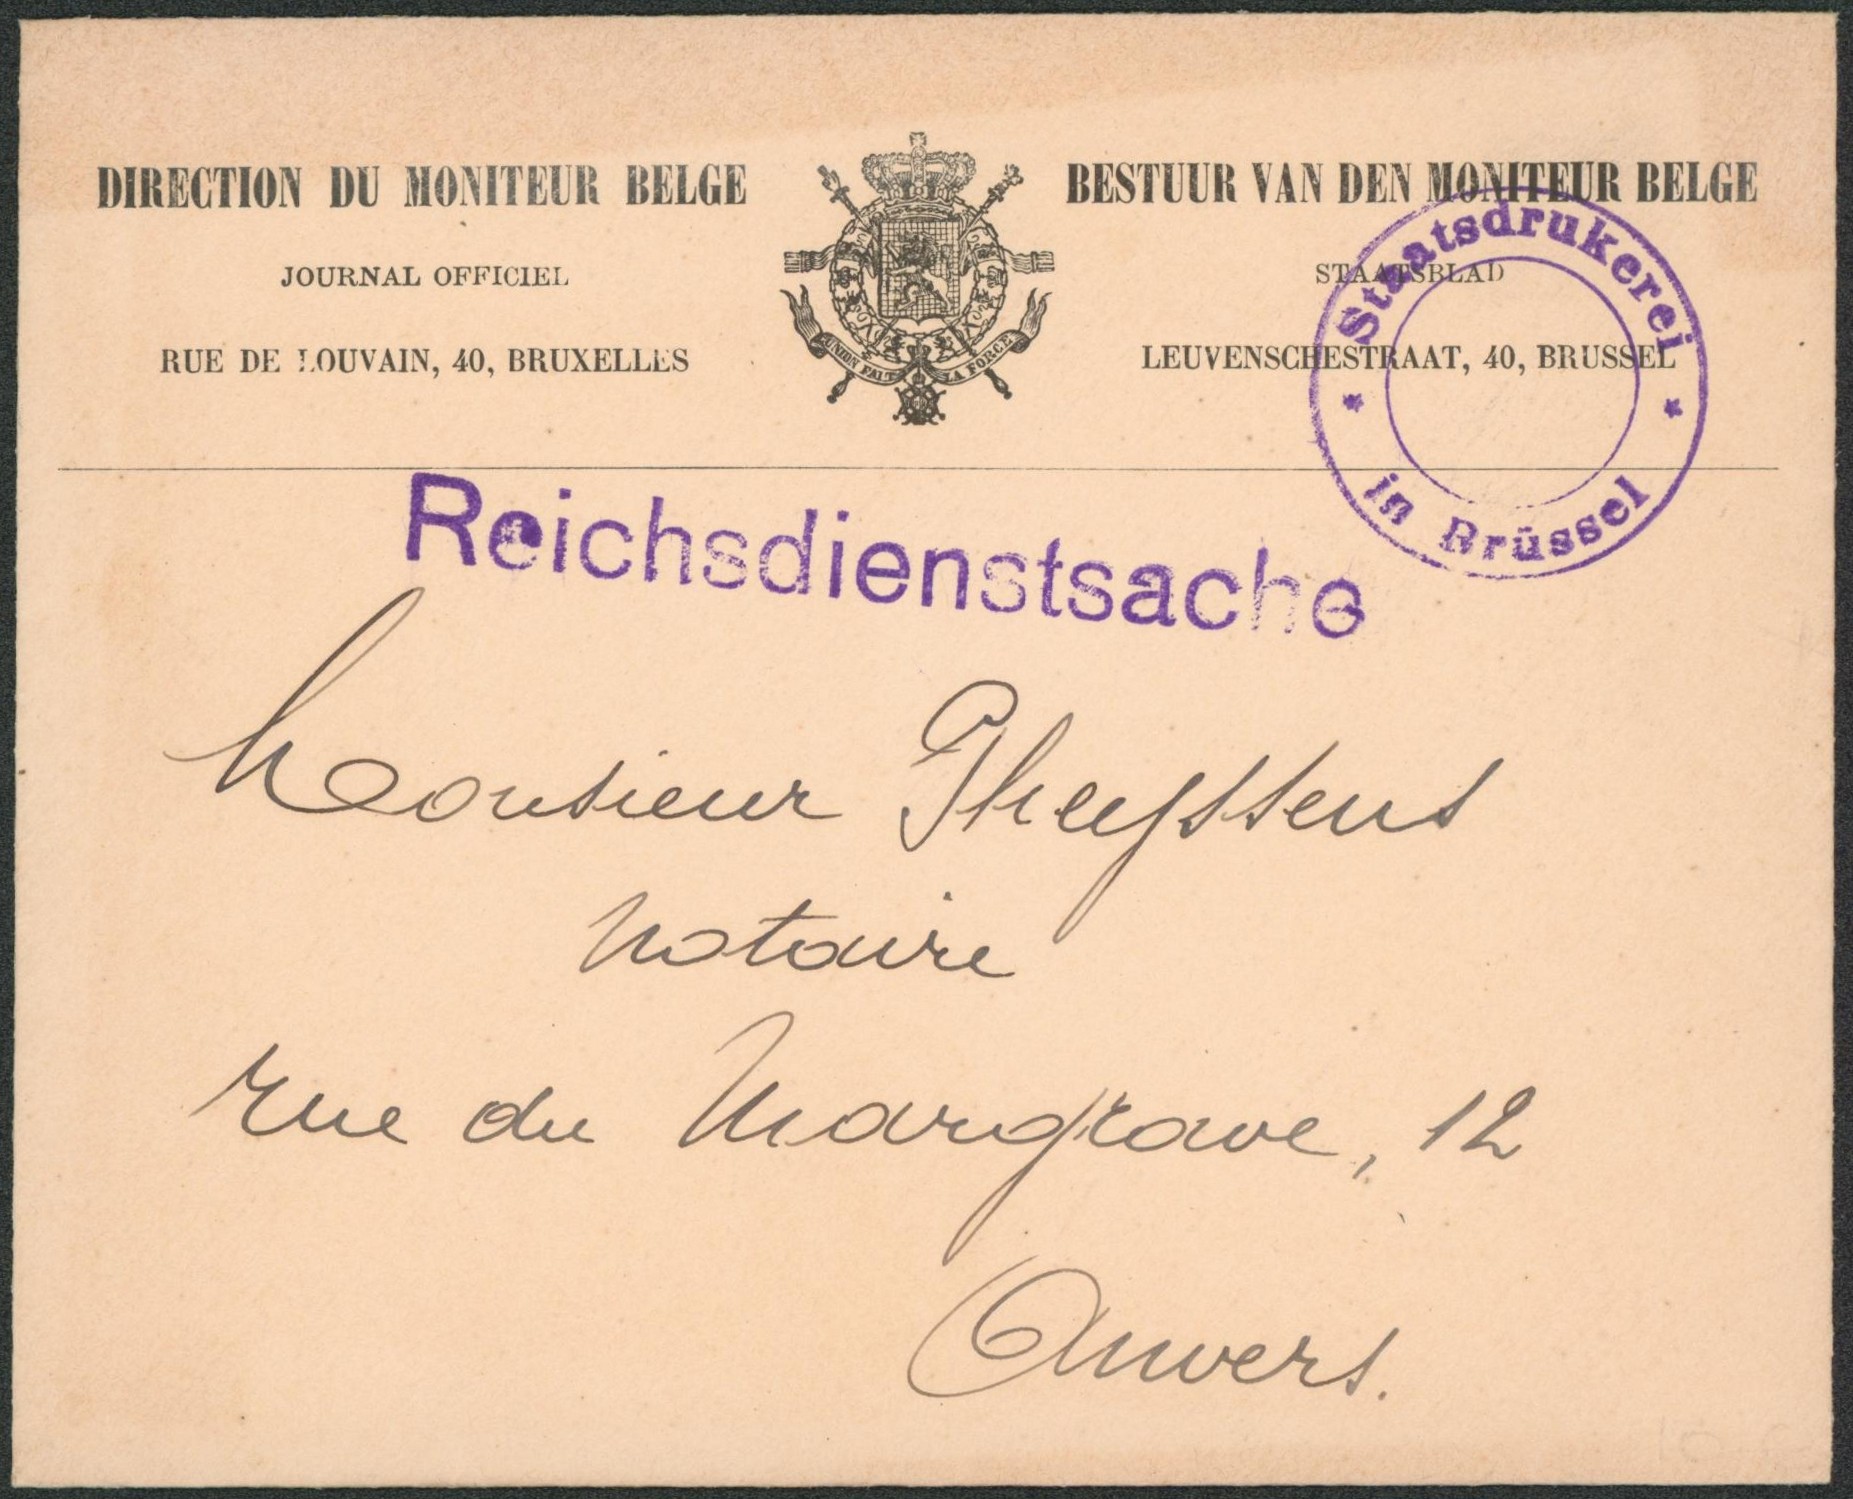 DIRECTION DU MONITEUR BELGE
JOURNAL OFFICIEL
RUE DE LOUVAIN, 40, BRUXELLES
UNION FAIT LA FORCE
BESTUUR VAN DEN MONITEUR BELGE
STAATSBLAD
LEUVENSCHESTRAAT, 40, BRUSSEL
* Staatsdrukerei *
in Brüssel
Reichsdienstsache
Monsieur Gheyssens
Notaire
rue du Margrave, 12
Anvers.